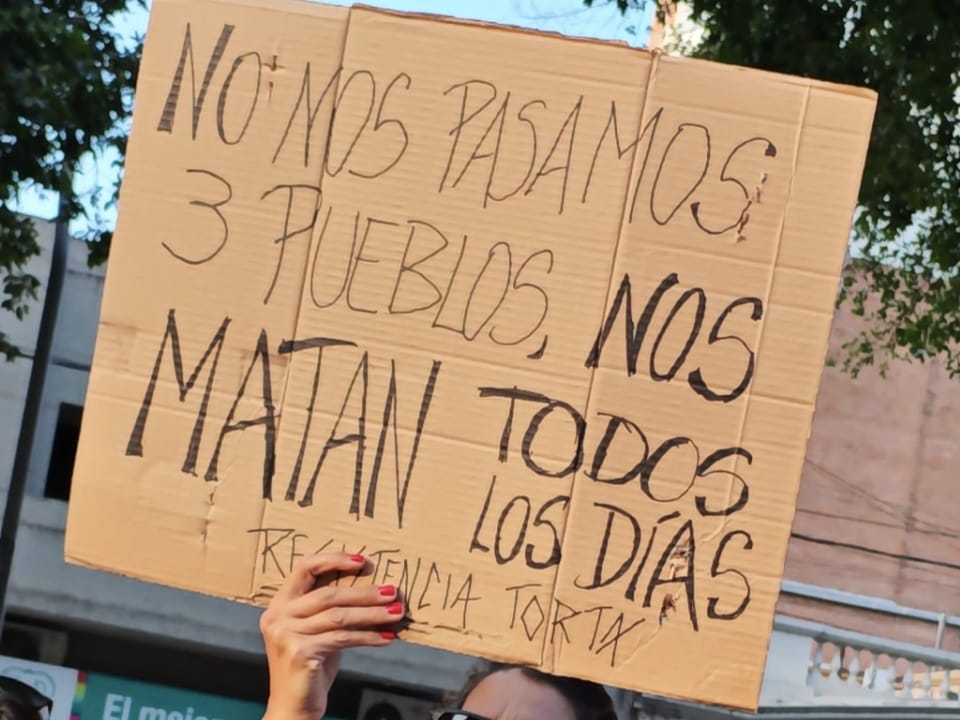 NO NOS PASAMOS
3 PUEBLOS, NOS
MATAN TODOS
LOS DÍAS
RESISTENCIA TORTA
El mejor